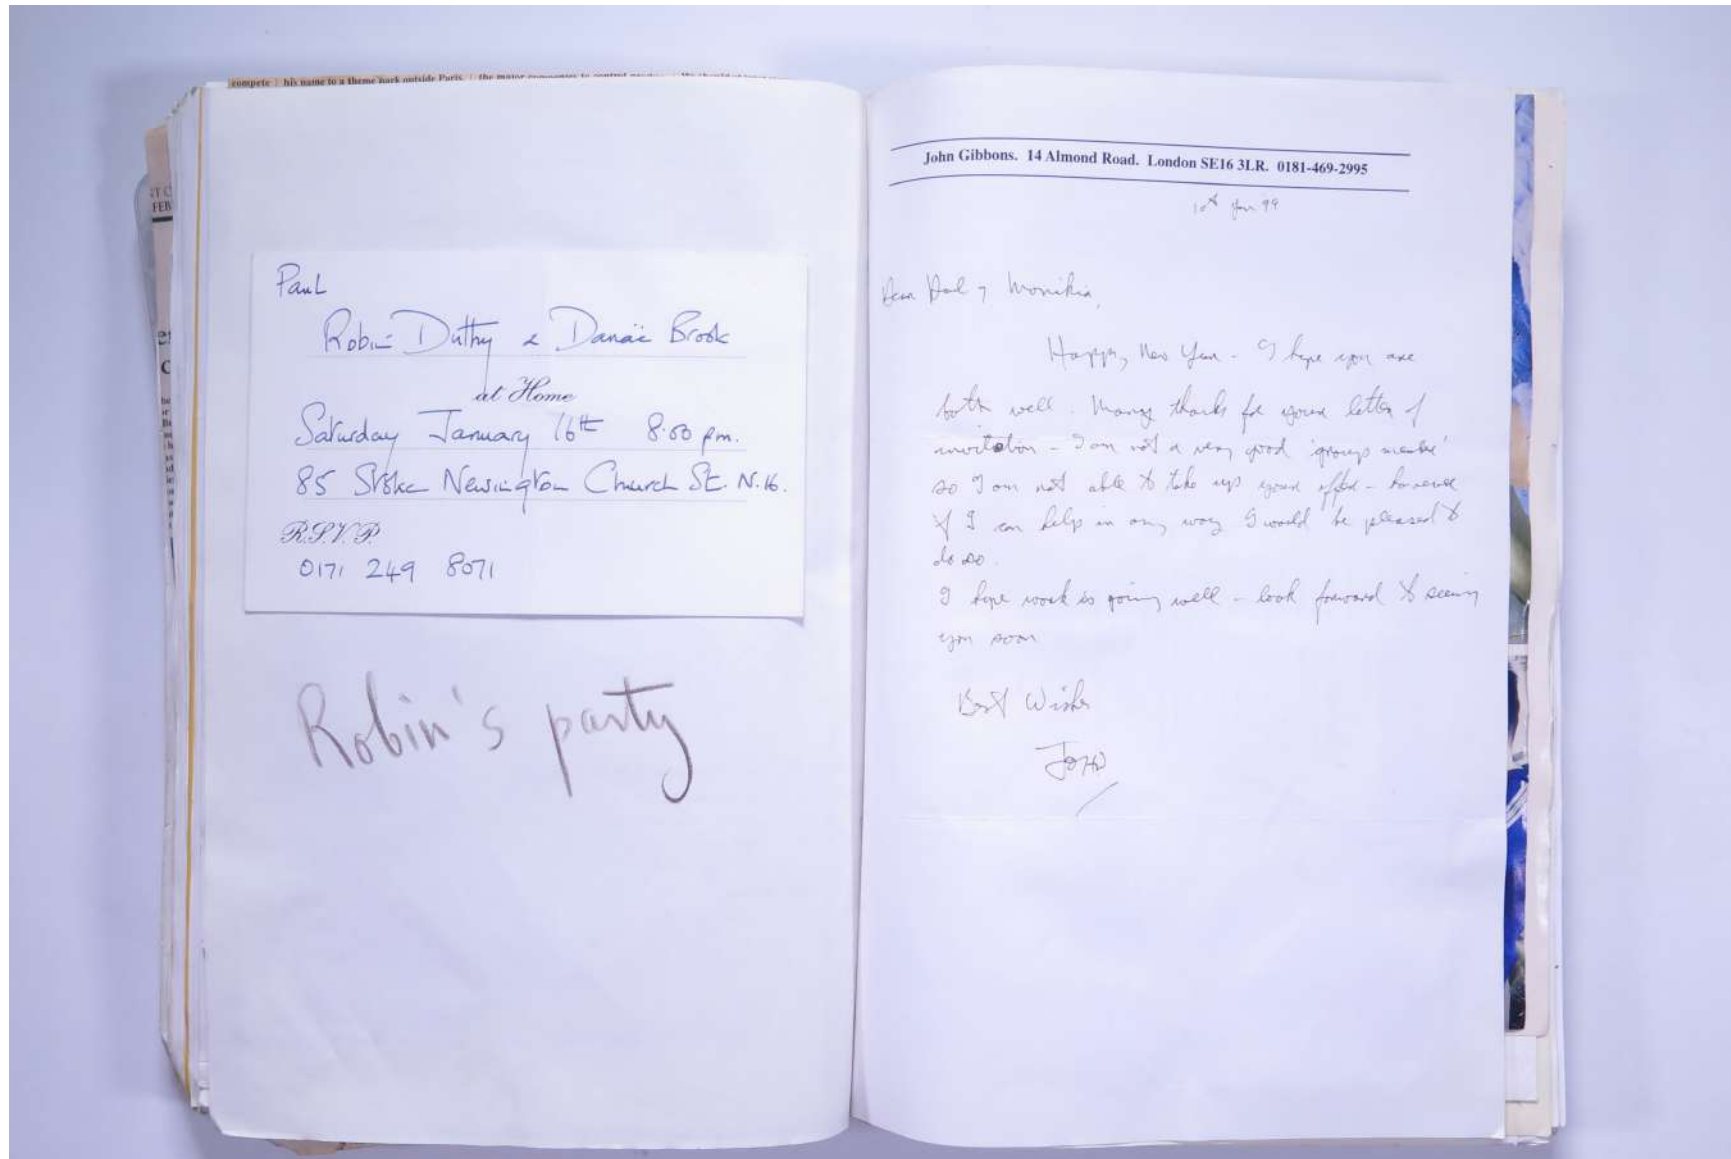 compete his name to a theme park outside Paris.
Paul
Robin Duthy & Danaë Brook
at Home
Saturday January 16th 8.00 pm.
85 Stoke Newington Church St. N.16.
R.S.V.P.
0171 249 8071
Robin's party
John Gibbons. 14 Almond Road. London SE16 3LR. 0181-469-2995
10th Jan 99
Dear Paul & Monikia,
Happy New Year - I hope you are
both well. Many thanks for your letter of
invitation - I am not a very good 'group member'
so I am not able to take up your offer - however
if I can help in any way I would be pleased to
do so.
I hope work is going well - look forward to seeing
you soon
Best Wishes
John